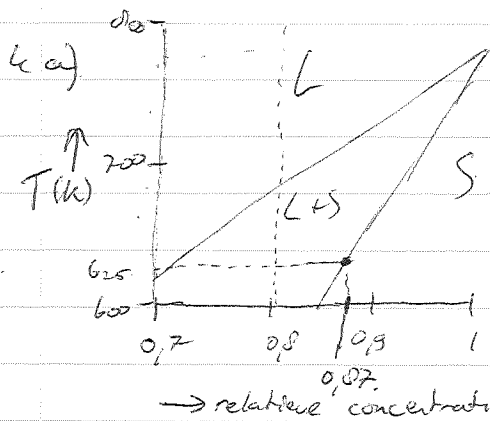 800
4 a)
L
T(k)
700
L+S
S
625
600
0,7
0,8
0,9
1
0,87
→ relatieve concentrati